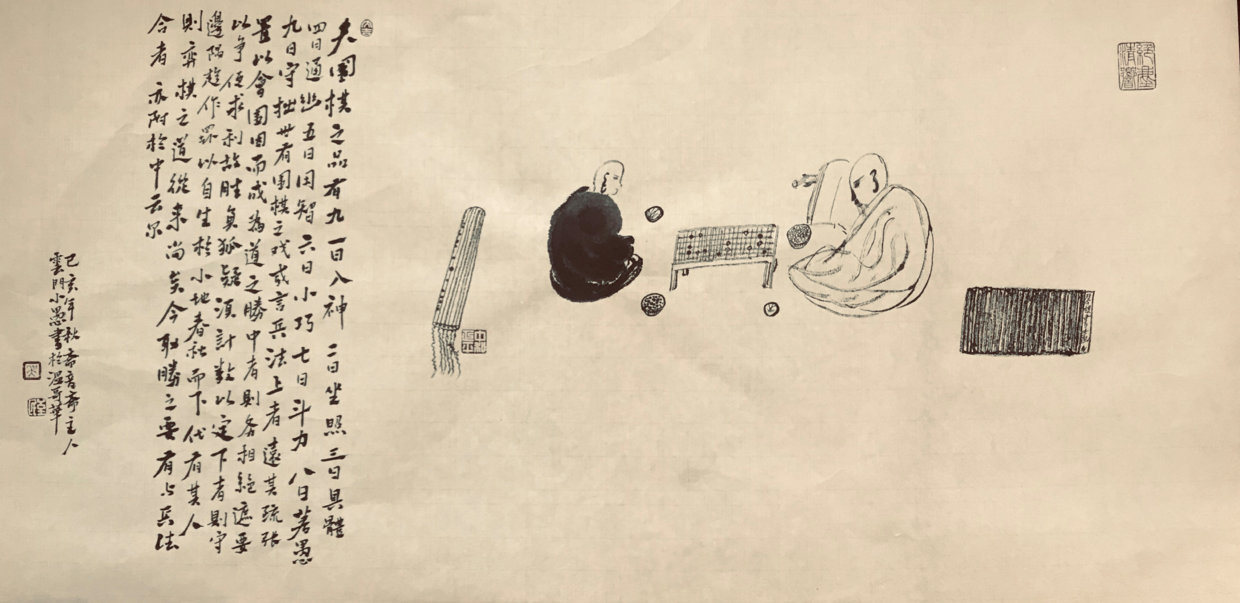 夫圍棋之品有九一曰入神二曰坐照三曰具體
四曰通幽五曰用智六曰小巧七曰斗力八曰若愚
九曰守拙世有圍棋之戏或言兵法上者遠其疏張
置以會圍因而成為道之勝中者則务相絕遮要
以爭便求利故胜負狐疑須計数以定下者則守
邊隅趋作罫以自生於小地春秋而下代有其人
則弈棋之道從来尚矣今取勝之要有与兵法
合者亦附於中云尔
己亥年秋希音斋主人
雲門小愚書於温哥華